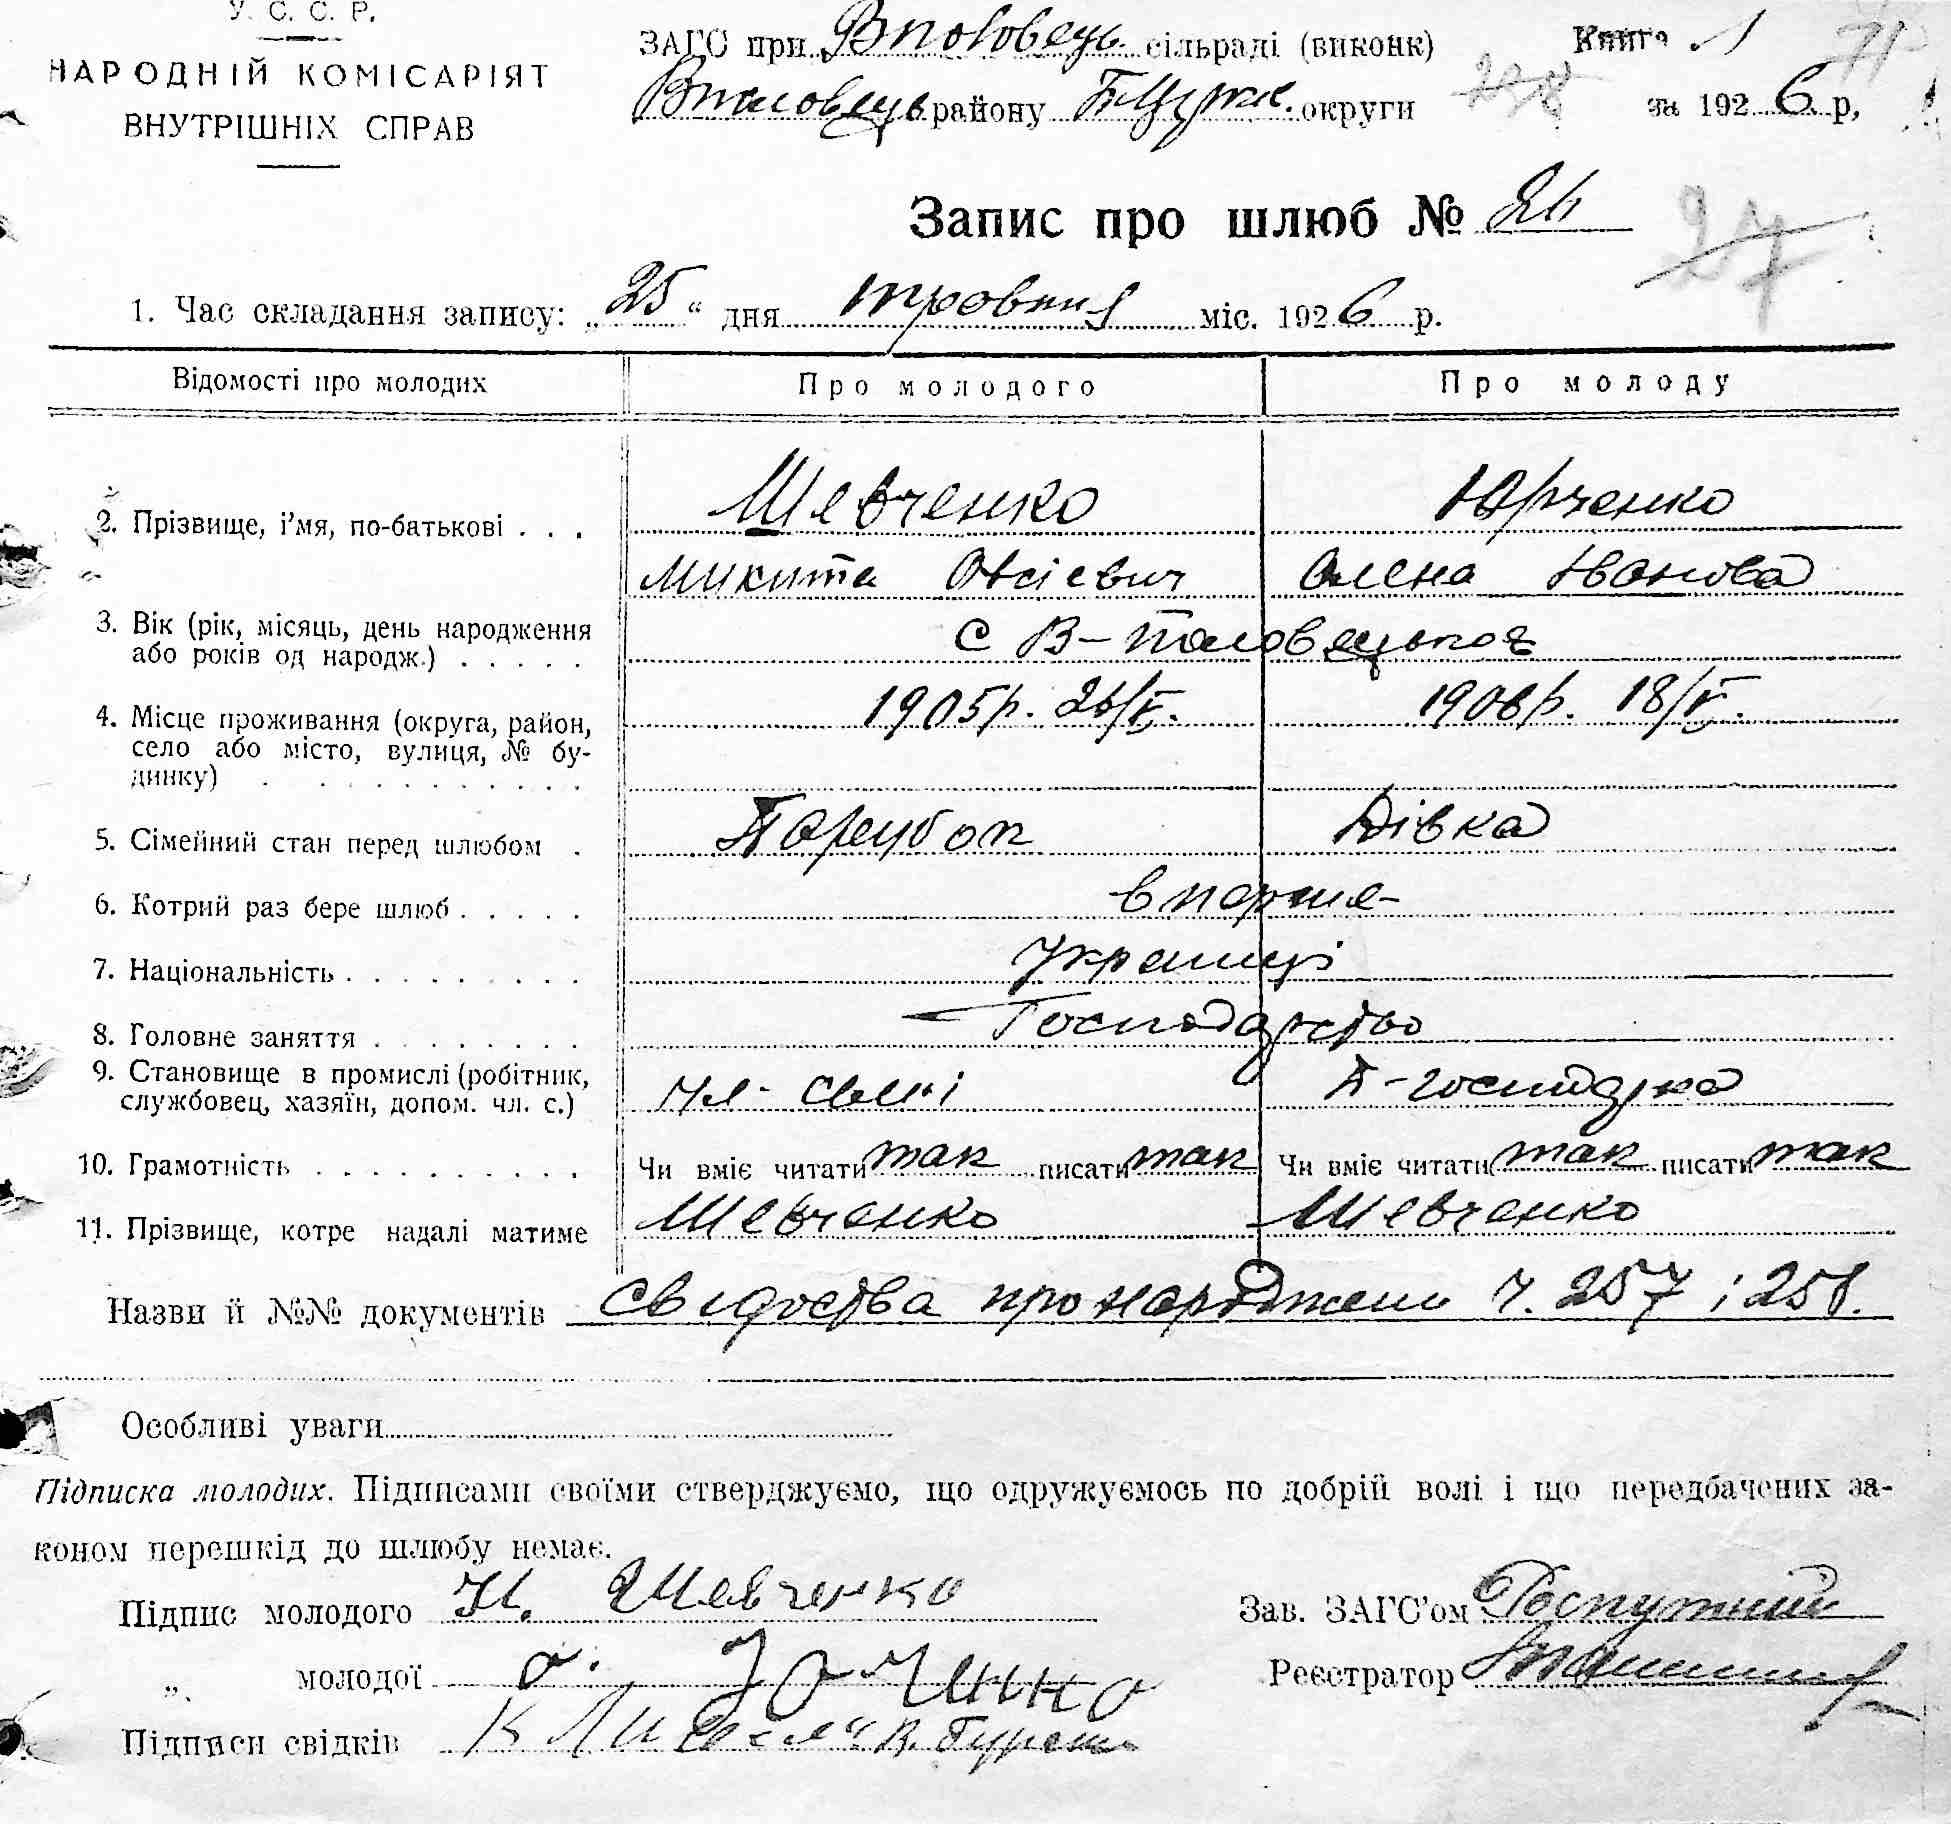 У. С. С. Р.
НАРОДНІЙ КОМІСАРІЯТ
ВНУТРІШНІХ СПРАВ
ЗАГС при Вполовець сільраді (виконк)
Вполовець району БЦерк. округи
Книга 1 71
238 за 1926 р,
Запис про шлюб № 26
27
1. Час складання запису: „25“ дня травня міс. 1926 р.
Відомості про молодих Про молодого Про молоду
2. Прізвище, і'мя, по-батькові . . . Шевченко Юрченко
Микита Овсієвич Олена Іванова
3. Вік (рік, місяць, день народження
або років од народж.) . . . . . с В-Половецькое
4. Місце проживання (округа, район, 1905р. 26/V. 1906р. 18/V.
село або місто, вулиця, № бу-
динку) . . . . . . . . . .
5. Сімейний стан перед шлюбом . Парубок Дівка
6. Котрий раз бере шлюб . . . . . вперше
7. Національність . . . . . . . . . Українці
8. Головне заняття . . . . . . . . Господарство
9. Становище в промислі (робітник, чл- сімї П-господарка
службовец, хазяїн, допом. чл. с.)
10. Грамотність . . . . . . . . . . Чи вміє читати так писати так Чи вміє читати так писати так
11. Прізвище, котре надалі матиме Шевченко Шевченко
Назви й №№ документів Свідоства про народжени Ч. 257 і 258.
Особливі уваги
Підписка молодих. Підписами своїми стверджуємо, що одружуємось по добрій волі і що передбачених за-
коном перешкід до шлюбу немає.
Підпис молодого Н. Шевченко Зав. ЗАГС'ом
„ молодої О. Реєстратор
Підписи свідків К